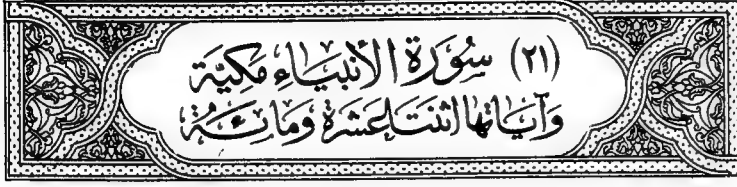 (٢١) سُوْرَةُ الأنبيَاءِ مَكِيَّة
وَآيَاتها اثنَتَا عَشرَة وَمَائَة